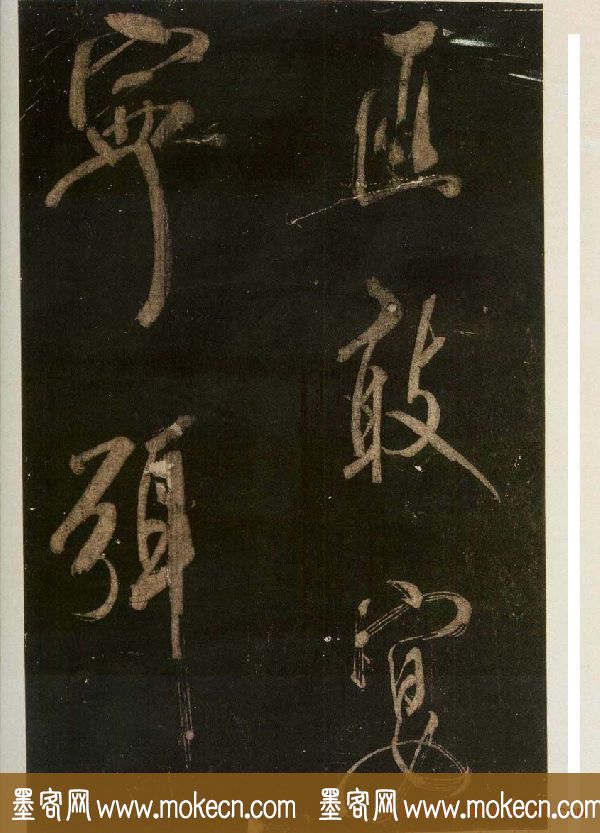 叵敢宴
寧弭
墨客网 www.mokecn.com 墨客网 www.mokecn.com